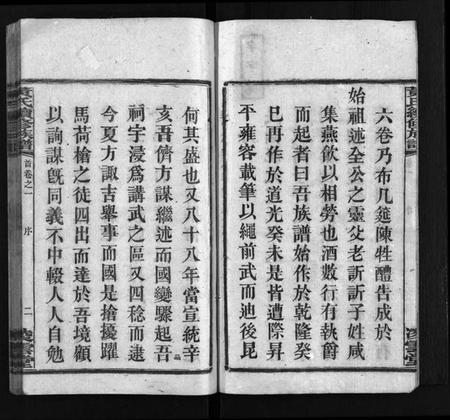 六卷乃布几筵陳牲醴告成於
始祖述全公之靈父老訢訢子姓咸
集燕飲以相勞也酒數行有執爵
而起者曰吾族譜始作於乾隆癸
巳再作於道光癸未是皆遭際昇
平雍容載筆以繩前武而迪後昆
何其盛也又八十八年當宣統辛
亥吾儕方謀繼述而國變驟起吾
祠宇浸為講武之區又四稔而逮
今夏方諏吉舉事而國是搶擾躍
馬荷槍之徒四出而達於吾境顧
以詢謀既同義不中輟人人自勉
黃氏續修族譜
首卷之一
序
二